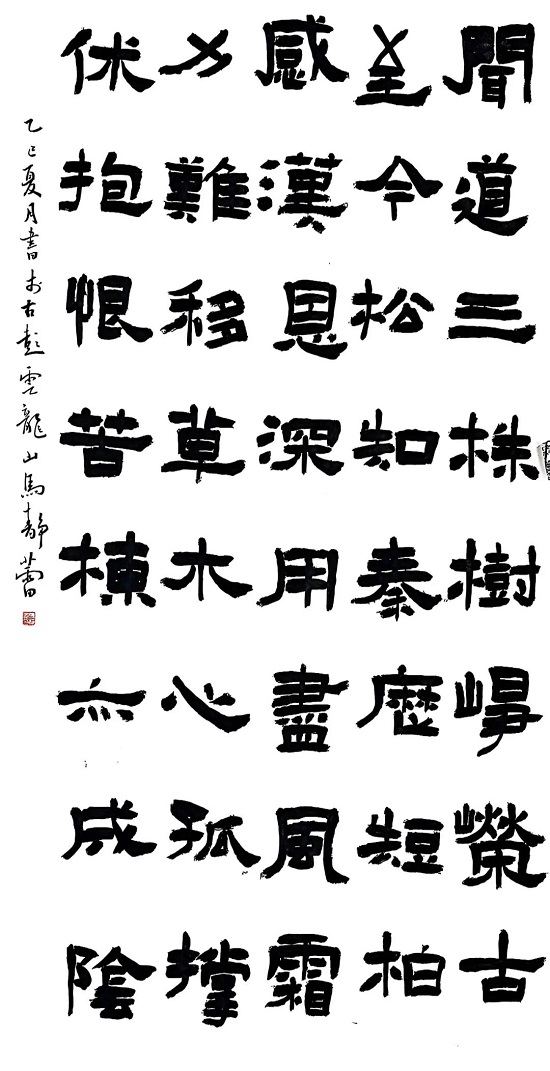 聞道三株樹崢嶸古
至今松知秦曆短柏
感漢恩深用盡風霜
力難移草木心孤撐
休抱恨苦楝亦成陰
乙巳夏月書於古彭雲龍山馬靜